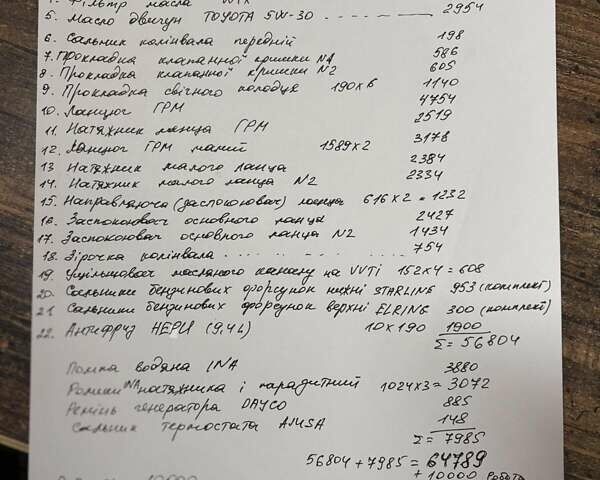 Фільтр масла WIX
5. Масло двигун TOYOTA 5W-30 . - - - . . 2954
6. Сальник колінвала передній 198
7. Прокладка клапанної кришки N1 586
8. Прокладка клапанної кришки N2 605
9. Прокладка свічного колодця 190x6 1140
10. Ланцюг ГРМ 4754
11. Натяжник ланца ГРМ 2519
12. Ланцюг ГРМ малий 1589x2 3178
13 Натяжник малого ланца 2384
14. Натяжник малого ланца N2 2334
15. Направляюча (заспокоювач) ланца 616x2 = 1232
16. Заспокоювач основного ланца 2427
17. Заспокоювач основного ланца N2 1434
18. Зірочка колінвала . . . . . . . . . 754
19. Ущільнювач масляного каналу на VVTi 152x4 = 608
20. Сальники бензинових форсунок нижні STARLINE 953 (комплект)
21. Сальники бензинових форсунок верхні ELRING 300 (комплект)
22. Антифриз HEPU (9,4L) 10x190 1900
Σ = 56804
Помпа водяна INA 3880
Ролики INA натяжника і паразитний 1024x3 = 3072
Ремінь генератора DAYCO 885
Сальник термостата AJUSA 148
Σ = 7985
56804 + 7985 = 64789
+ 10000 робота